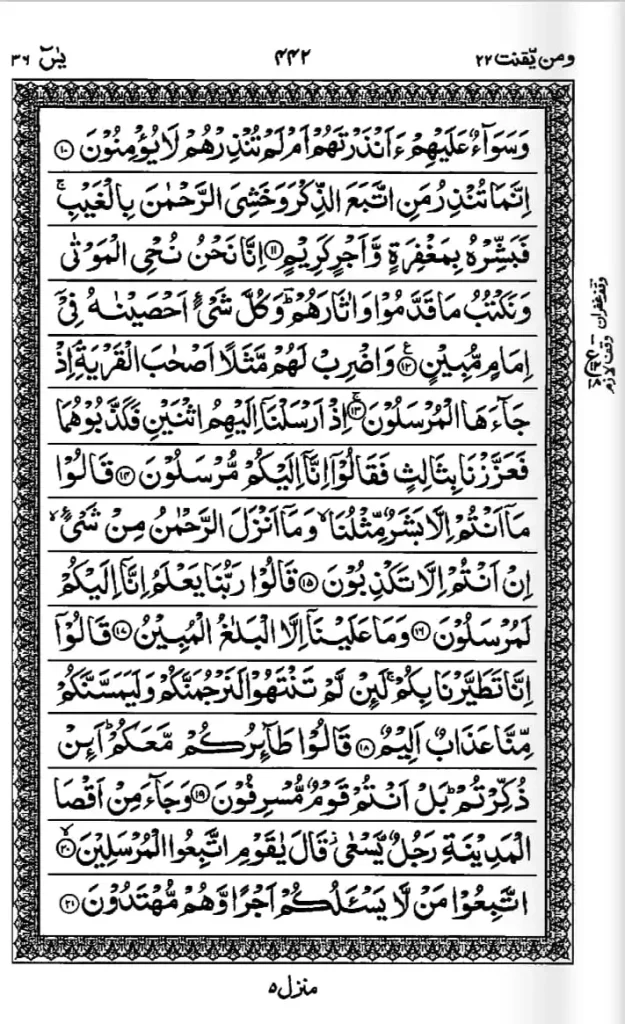 ومن یقنت ٢٢
٤٤٢
یٰسٓ ٣٦
وَسَوَآءٌ عَلَیۡهِمۡ ءَاَنۡذَرۡتَهُمۡ اَمۡ لَمۡ تُنۡذِرۡهُمۡ لَا یُؤۡمِنُوۡنَ ﴿١٠﴾
اِنَّمَا تُنۡذِرُ مَنِ اتَّبَعَ الذِّكۡرَ وَخَشِیَ الرَّحۡمٰنَ بِالۡغَیۡبِ ۚ
فَبَشِّرۡهُ بِمَغۡفِرَةٍ وَّاَجۡرٍ كَرِیۡمٍ ﴿١١﴾ اِنَّا نَحۡنُ نُحۡیِ الۡمَوۡتٰی
وَنَكۡتُبُ مَا قَدَّمُوۡا وَاٰثَارَهُمۡ ؕ وَكُلَّ شَیۡءٍ اَحۡصَیۡنٰهُ فِیۡۤ
اِمَامٍ مُّبِیۡنٍ ﴿١٢﴾ وَاضۡرِبۡ لَهُمۡ مَّثَلًا اَصۡحٰبَ الۡقَرۡیَةِ ۘ اِذۡ
جَآءَهَا الۡمُرۡسَلُوۡنَ ﴿١٣﴾ اِذۡ اَرۡسَلۡنَاۤ اِلَیۡهِمُ اثۡنَیۡنِ فَكَذَّبُوۡهُمَا
فَعَزَّزۡنَا بِثَالِثٍ فَقَالُوۡۤا اِنَّاۤ اِلَیۡكُمۡ مُّرۡسَلُوۡنَ ﴿١٤﴾ قَالُوۡا
مَاۤ اَنۡتُمۡ اِلَّا بَشَرٌ مِّثۡلُنَا ۙ وَمَاۤ اَنۡزَلَ الرَّحۡمٰنُ مِنۡ شَیۡءٍ ۙ
اِنۡ اَنۡتُمۡ اِلَّا تَكۡذِبُوۡنَ ﴿١٥﴾ قَالُوۡا رَبُّنَا یَعۡلَمُ اِنَّاۤ اِلَیۡكُمۡ
لَمُرۡسَلُوۡنَ ﴿١٦﴾ وَمَا عَلَیۡنَاۤ اِلَّا الۡبَلٰغُ الۡمُبِیۡنُ ﴿١٧﴾ قَالُوۡۤا
اِنَّا تَطَیَّرۡنَا بِكُمۡ ۚ لَئِنۡ لَّمۡ تَنۡتَهُوۡا لَنَرۡجُمَنَّكُمۡ وَلَیَمَسَّنَّكُمۡ
مِّنَّا عَذَابٌ اَلِیۡمٌ ﴿١٨﴾ قَالُوۡا طَآئِرُكُمۡ مَّعَكُمۡ ؕ اَئِنۡ
ذُكِّرۡتُمۡ ؕ بَلۡ اَنۡتُمۡ قَوۡمٌ مُّسۡرِفُوۡنَ ﴿١٩﴾ وَجَآءَ مِنۡ اَقۡصَا
الۡمَدِیۡنَةِ رَجُلٌ یَّسۡعٰی ۫ قَالَ یٰقَوۡمِ اتَّبِعُوا الۡمُرۡسَلِیۡنَ ﴿٢٠﴾
اتَّبِعُوۡا مَنۡ لَّا یَسۡـَٔلُكُمۡ اَجۡرًا وَّهُمۡ مُّهۡتَدُوۡنَ ﴿٢١﴾
وقف غفران
وقف لازم
منزل ٥